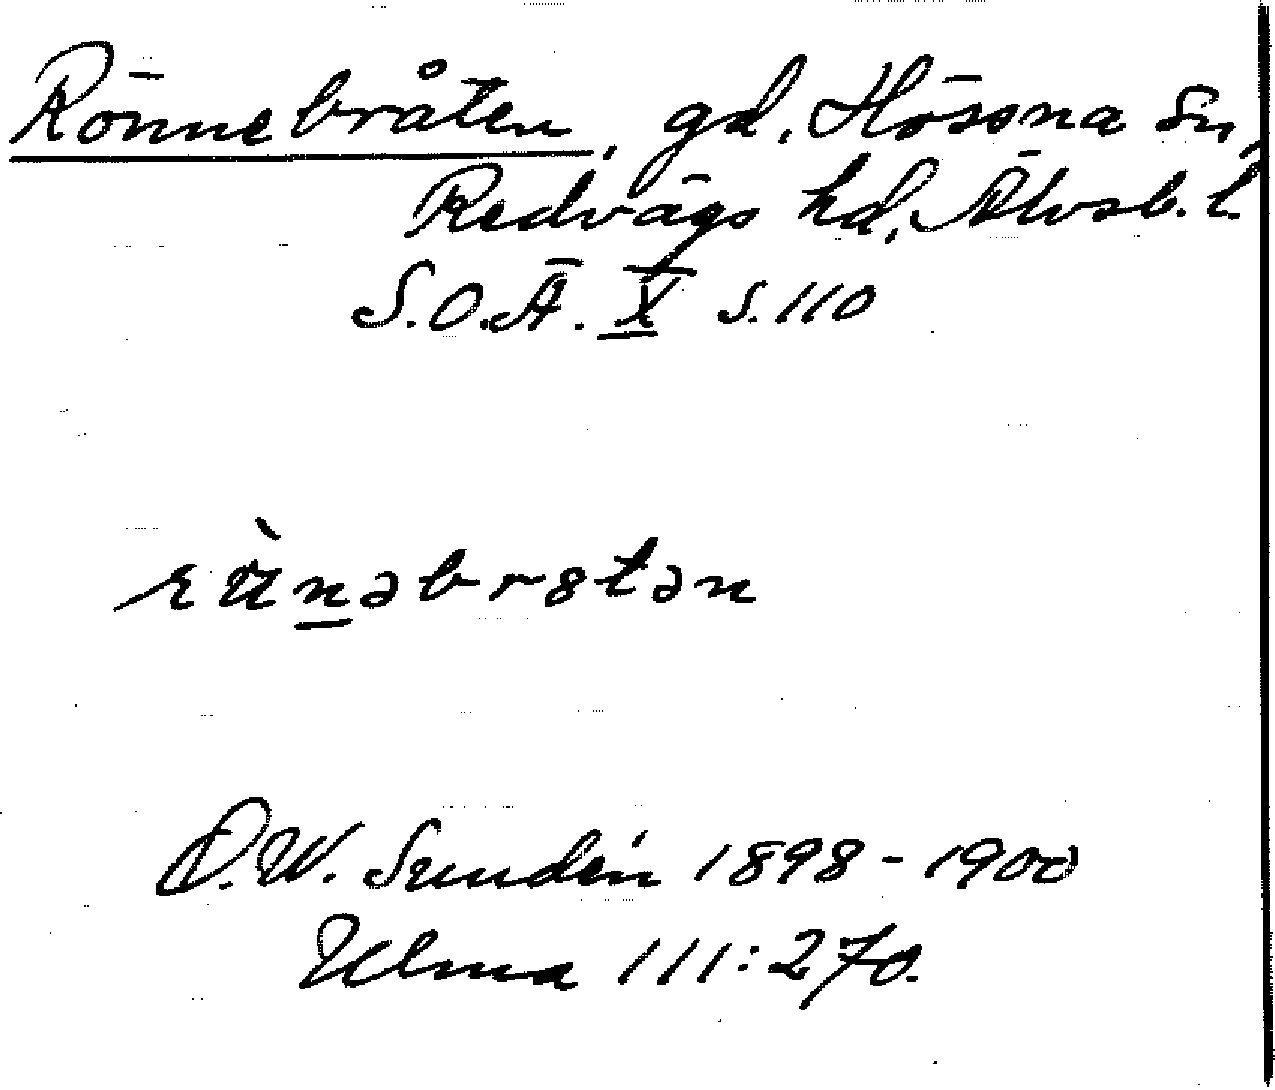 Rönnebråten, gd, Hössna sn,
Redvägs hd, Älvsb. l.
S.O.Ä. X s. 110
rǜnəbr8tən
D.W. Sundén 1898-1900
Ulma 111:270.